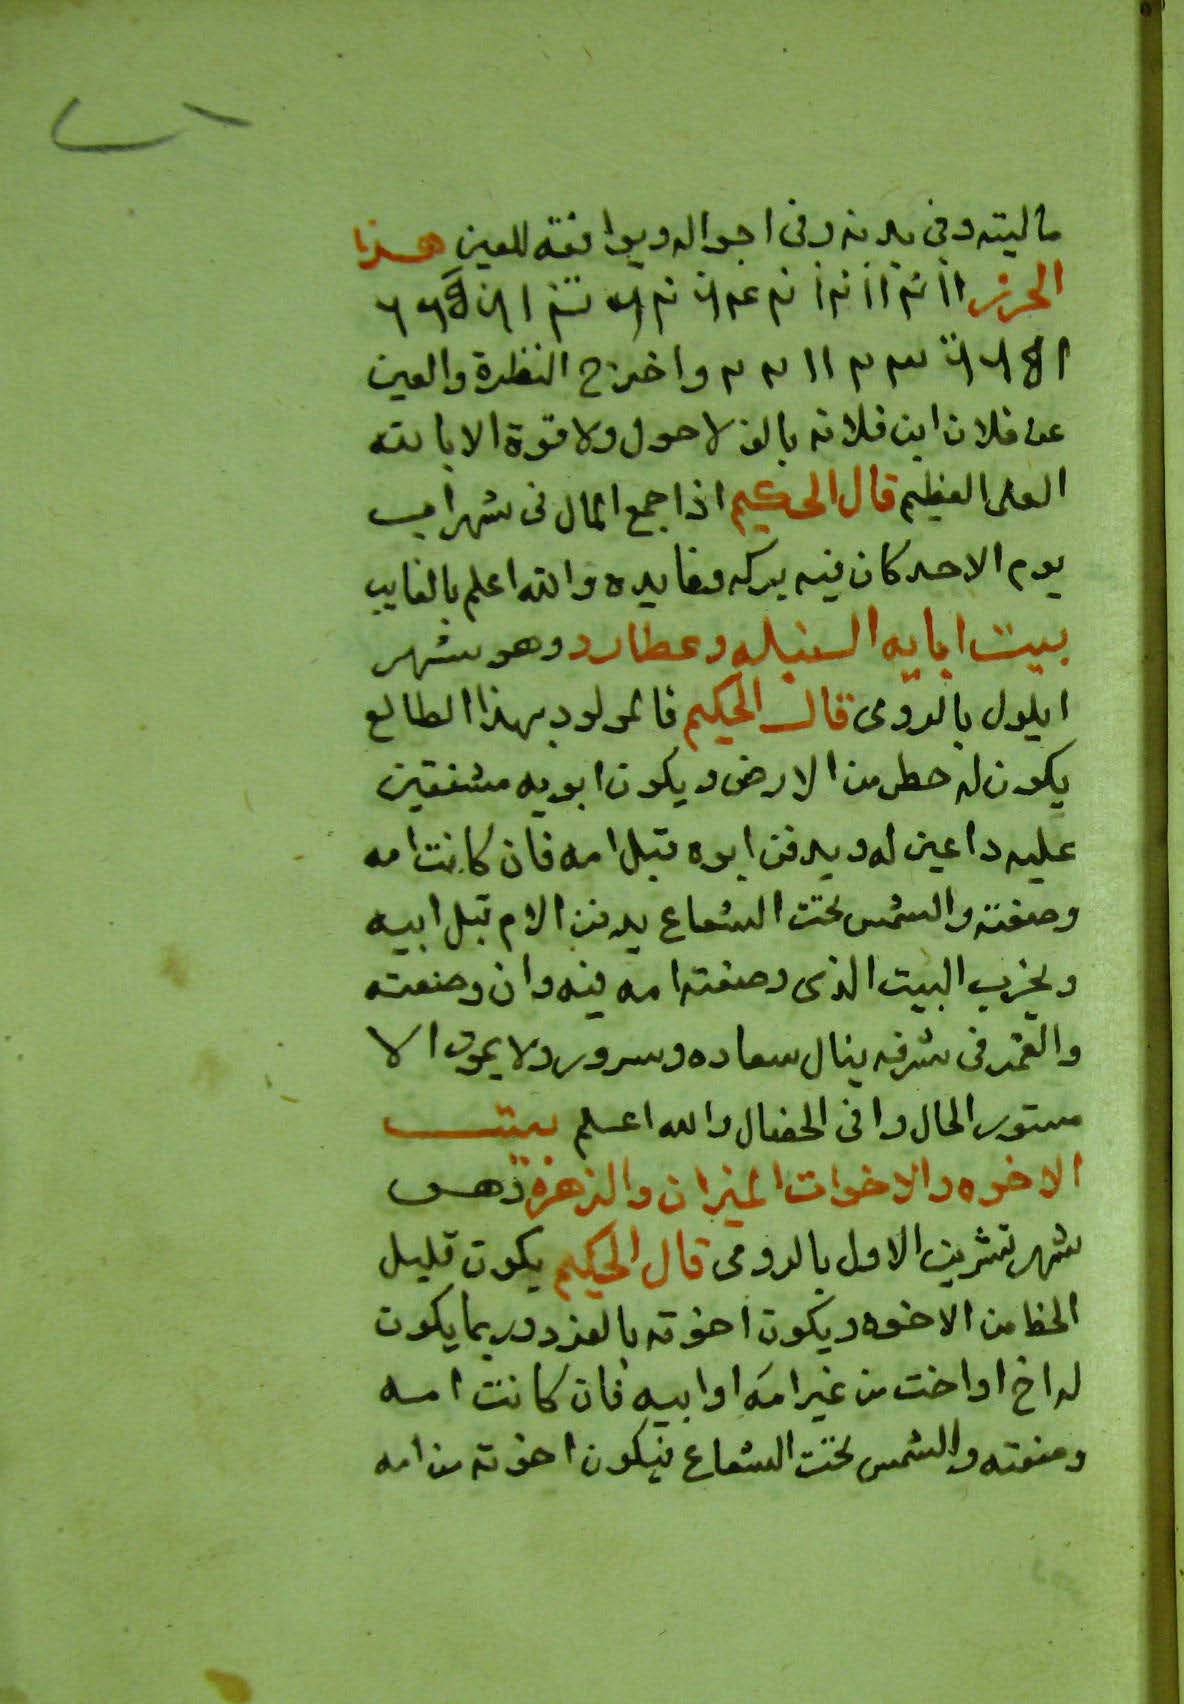 ماليته وفى بدنه وفى احواله ويوافقه للعين هذا
الحرز
واخرج النظرة والعين
عن فلان ابن فلانه بالف لاحول ولا قوة الا بالله
العلى العظيم قال الحكيم اذا جمع المال فى شهر اب
يوم الاحد كان فيه بركه وفايده والله اعلم بالغايب
بيت ابايه السنبله وعطارد وهو شهر
ايلول بالرومى قال الحكيم فالمولود بهذا الطالع
يكون له حظ من الارض ويكون ابويه مشفقين
عليه داعين له ويدفن ابوه قبل امه فان كانت امه
وضعته والشمس تحت الشعاع يدفن الام قبل ابيه
ويخرب البيت الذى وضعته امه فيه وان وضعته
والقمر فى شرفه ينال سعاده وسرور ولا يموت الا
مستور الحال وافى الخصال والله اعلم بيت
الاخوه والاخوات الميزان والزهرة وهو
شهر تشرين الاول بالرومى قال الحكيم يكون قليل
الحظ من الاخوه ويكون اخوته بالعدد وربما يكون
له اخ او اخت من غير امه او ابيه فان كانت امه
وضعته والشمس تحت الشعاع فيكون اخوته من امه